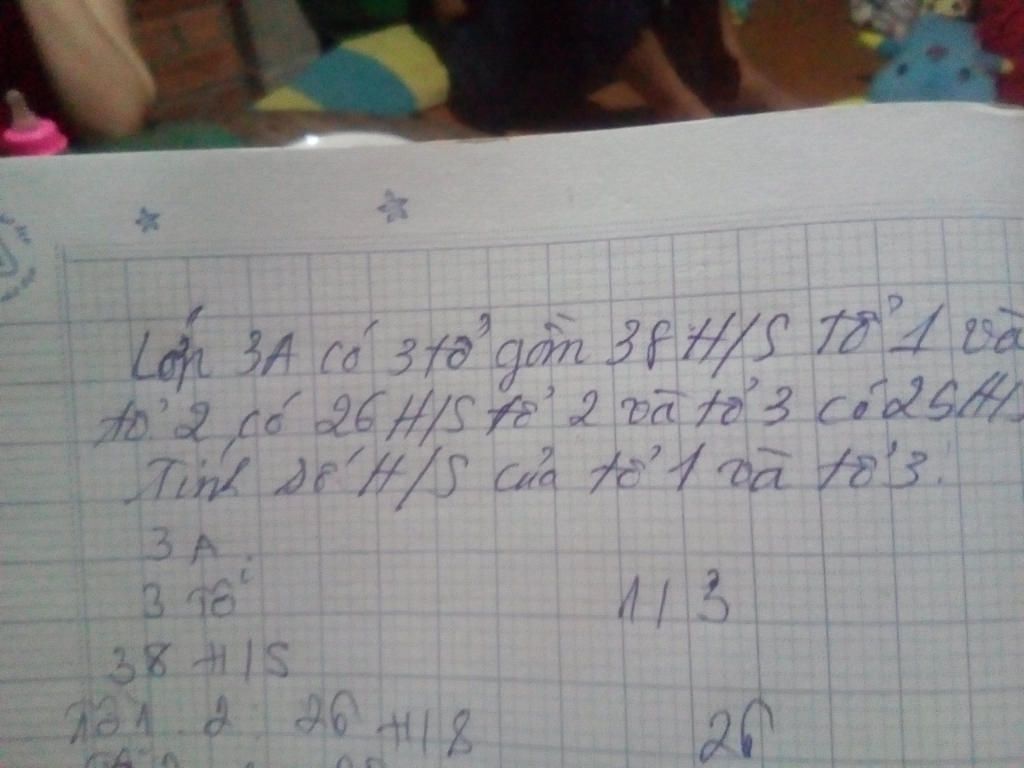 Lớp 3A có 3 tổ gồm 38 H/S tổ 1 và
tổ 2 có 26 H/S tổ 2 và tổ 3 có 25 H/S
Tính số H/S của tổ 1 và tổ 3.
3 A.
3 Tổ
1 / 3
38 H/S
Tổ 1 2 26 H/S
26